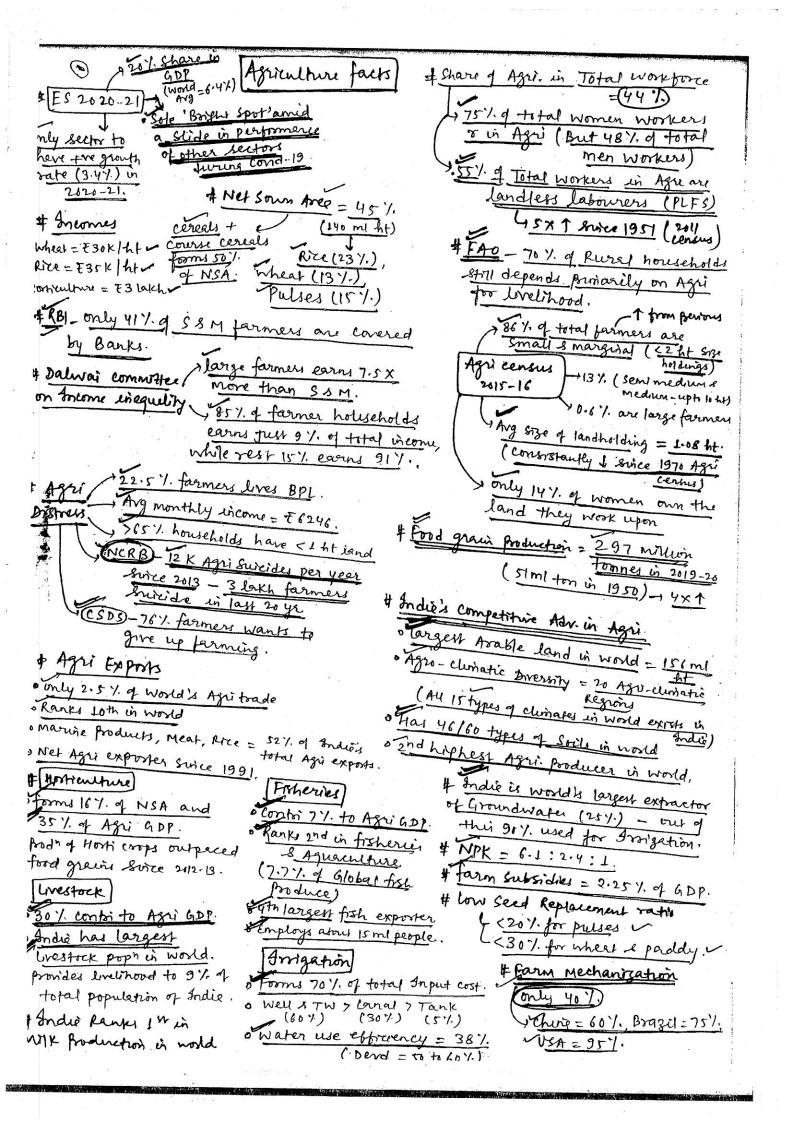 Agriculture facts
①
20% share in
GDP
(World
Avg = 6.4%)
* ES 2020-21
• Sole 'Bright spot' amid
a slide in performance
of other sectors
during Covid-19.
nly sector to
have +ve growth
rate (3.4%) in
2020-21.
# Net Sown Area = 45%
(140 ml ht)
cereals +
course cereals
forms 50%
of NSA.
Rice (23%),
Wheat (13%)
Pulses (15%)
# Incomes
Wheat = ₹30K/ht
Rice = ₹35K/ht
orticulture = ₹3 lakh
# RBI - only 41% of S&M farmers are covered
by Banks.
# Dalwai committee
on Income inequality
large farmers earns 7.5x
more than S&M.
85% of farmer households
earns just 9% of total income,
while rest 15% earns 91%.
Agri
Distress
22.5% farmers lives BPL.
Avg monthly income = ₹6246.
>65% households have <1 ht land
NCRB - 12K Agri Suicides per year
since 2013 - 3 lakh farmers
suicide in last 20 yr
CSDS - 76% farmers wants to
give up farming.
# Agri Exports
• only 2.5% of world's Agri trade
• Ranks 10th in world
• Marine Products, Meat, Rice = 52% of India's
total Agri exports.
• Net Agri exporter since 1991.
# Horticulture
forms 16% of NSA and
35% of Agri GDP.
Prodn of Horti crops outpaced
food grains since 2012-13.
Livestock
30% contri to Agri GDP.
India has largest
livestock popn in world.
Provides livelihood to 9% of
total population of India.
India Ranks 1st in
Milk Production in world
Fisheries
• Contri 7% to Agri GDP.
• Ranks 2nd in fisheries
& Aquaculture
(7.7% of Global fish
Produce)
4th largest fish exporter
Employs about 15 ml people.
Irrigation
• Forms 70% of total Input cost.
• Well & TW > Canal > Tank
(60%) (30%) (5%)
• Water use efficiency = 38%
(Devd = 50 to 60%)
# Share of Agri. in Total workforce
= 44%
75% of total women workers
r in Agri (But 48% of total
men workers)
55% of Total Workers in Agri are
landless labourers (PLFS)
↳ 5x ↑ since 1951 (2011
census)
# FAO - 70% of Rural households
still depends Primarily on Agri
for livelihood.
↑ from previous
86% of total farmers are
small & marginal (<2 ht size
holdings)
Agri census
2015-16
→ 13% (semi medium &
medium - upto 10 ht)
0.6% are large farmers
Avg size of landholding = 1.08 ht.
(consistantly ↓ since 1970 Agri
census)
only 14% of women own the
land they work upon
# Food grain production = 297 million
tonnes in 2019-20
(51 ml ton in 1950) → 4x↑
# India's competitive Adv. in Agri.
• largest Arable land in world = 156 ml
ht
• Agro-climatic Diversity = 20 Agro-climatic
Regions
(All 15 types of climates in world exists in
India)
• Has 46/60 types of Soils in world
• 2nd highest Agri. Producer in world.
# India is world's largest extractor
of Groundwater (25%) - out of
this 90% used for Irrigation.
# NPK = 6.1 : 2.4 : 1.
# farm subsidies = 2.25% of GDP.
# low Seed Replacement ratio
<20% for pulses
<30% for wheat & paddy.
# Farm Mechanization
only 40%
China = 60%, Brazil = 75%.
USA = 95%.